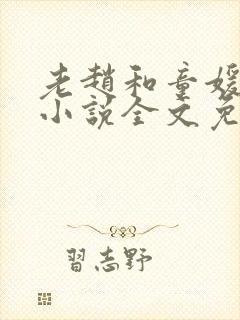 老趙和童媛
小說全文免
習志野